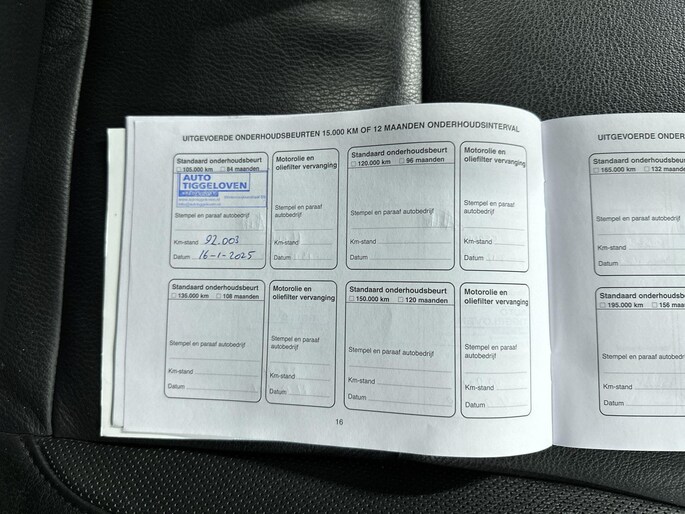 UITGEVOERDE ONDERHOUDSBEURTEN 15.000 KM OF 12 MAANDEN ONDERHOUDSINTERVAL
Standaard onderhoudsbeurt
105.000 km 84 maanden
AUTO
TIGGELOVEN
Stempel en paraaf autobedrijf
Km-stand 92.003
Datum 16-1-2025
Motorolie en
oliefilter vervanging
Stempel en paraaf
autobedrijf
Km-stand
Datum
Standaard onderhoudsbeurt
120.000 km 96 maanden
Stempel en paraaf autobedrijf
Km-stand
Datum
Motorolie en
oliefilter vervanging
Stempel en paraaf
autobedrijf
Km-stand
Datum
Standaard onderhoudsbeurt
135.000 km 108 maanden
Stempel en paraaf autobedrijf
Km-stand
Datum
Motorolie en
oliefilter vervanging
Stempel en paraaf
autobedrijf
Km-stand
Datum
Standaard onderhoudsbeurt
150.000 km 120 maanden
Stempel en paraaf autobedrijf
Km-stand
Datum
Motorolie en
oliefilter vervanging
Stempel en paraaf
autobedrijf
Km-stand
Datum
16
UITGEVOERDE ONDER
Standaard onderhoudsb
165.000 km 132 maan
Stempel en paraaf autobedr
Km-stand
Datum
Standaard onderhoudsb
195.000 km 156 maa
Stempel en paraaf autobedri
Km-stand
Datum